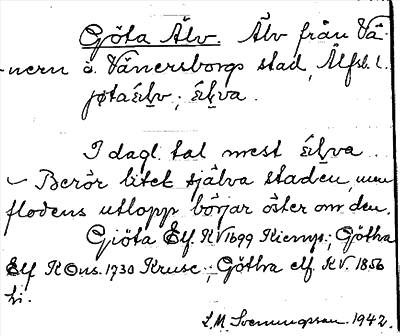 Göta Älv. Älv från Vä-
nern å Vänersborgs stad, Älfsb. l.
jøtaélv; élva.
I dagl. tal mest élva.
– Berör litet själva staden, men
flodens utlopp börjar öster om den.
Giöta Elf KV 1699 Kiemp.; Götha
Elf K Ons. 1730 Kruse.; Götha elf. KV. 1856
hi.
L. M. Svenungsson. 1942.